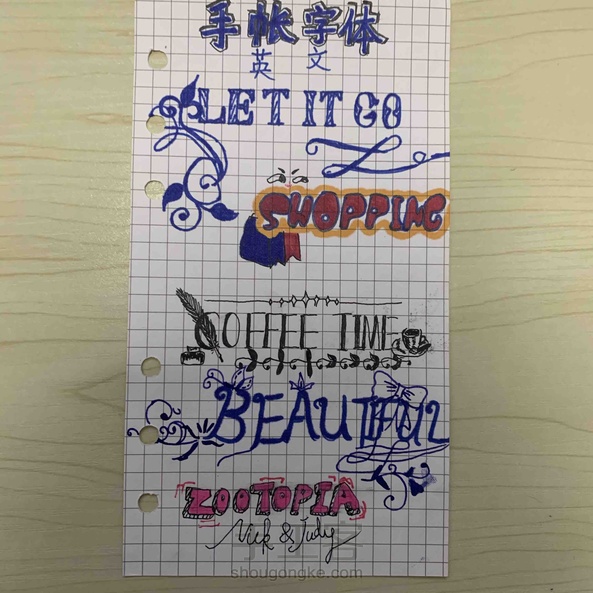 手帐字体
英文
LET IT GO
SHOPPING
COFFEE TIME
BEAUTIFUL
ZOOTOPIA
Nick & Judy
shougongke.com